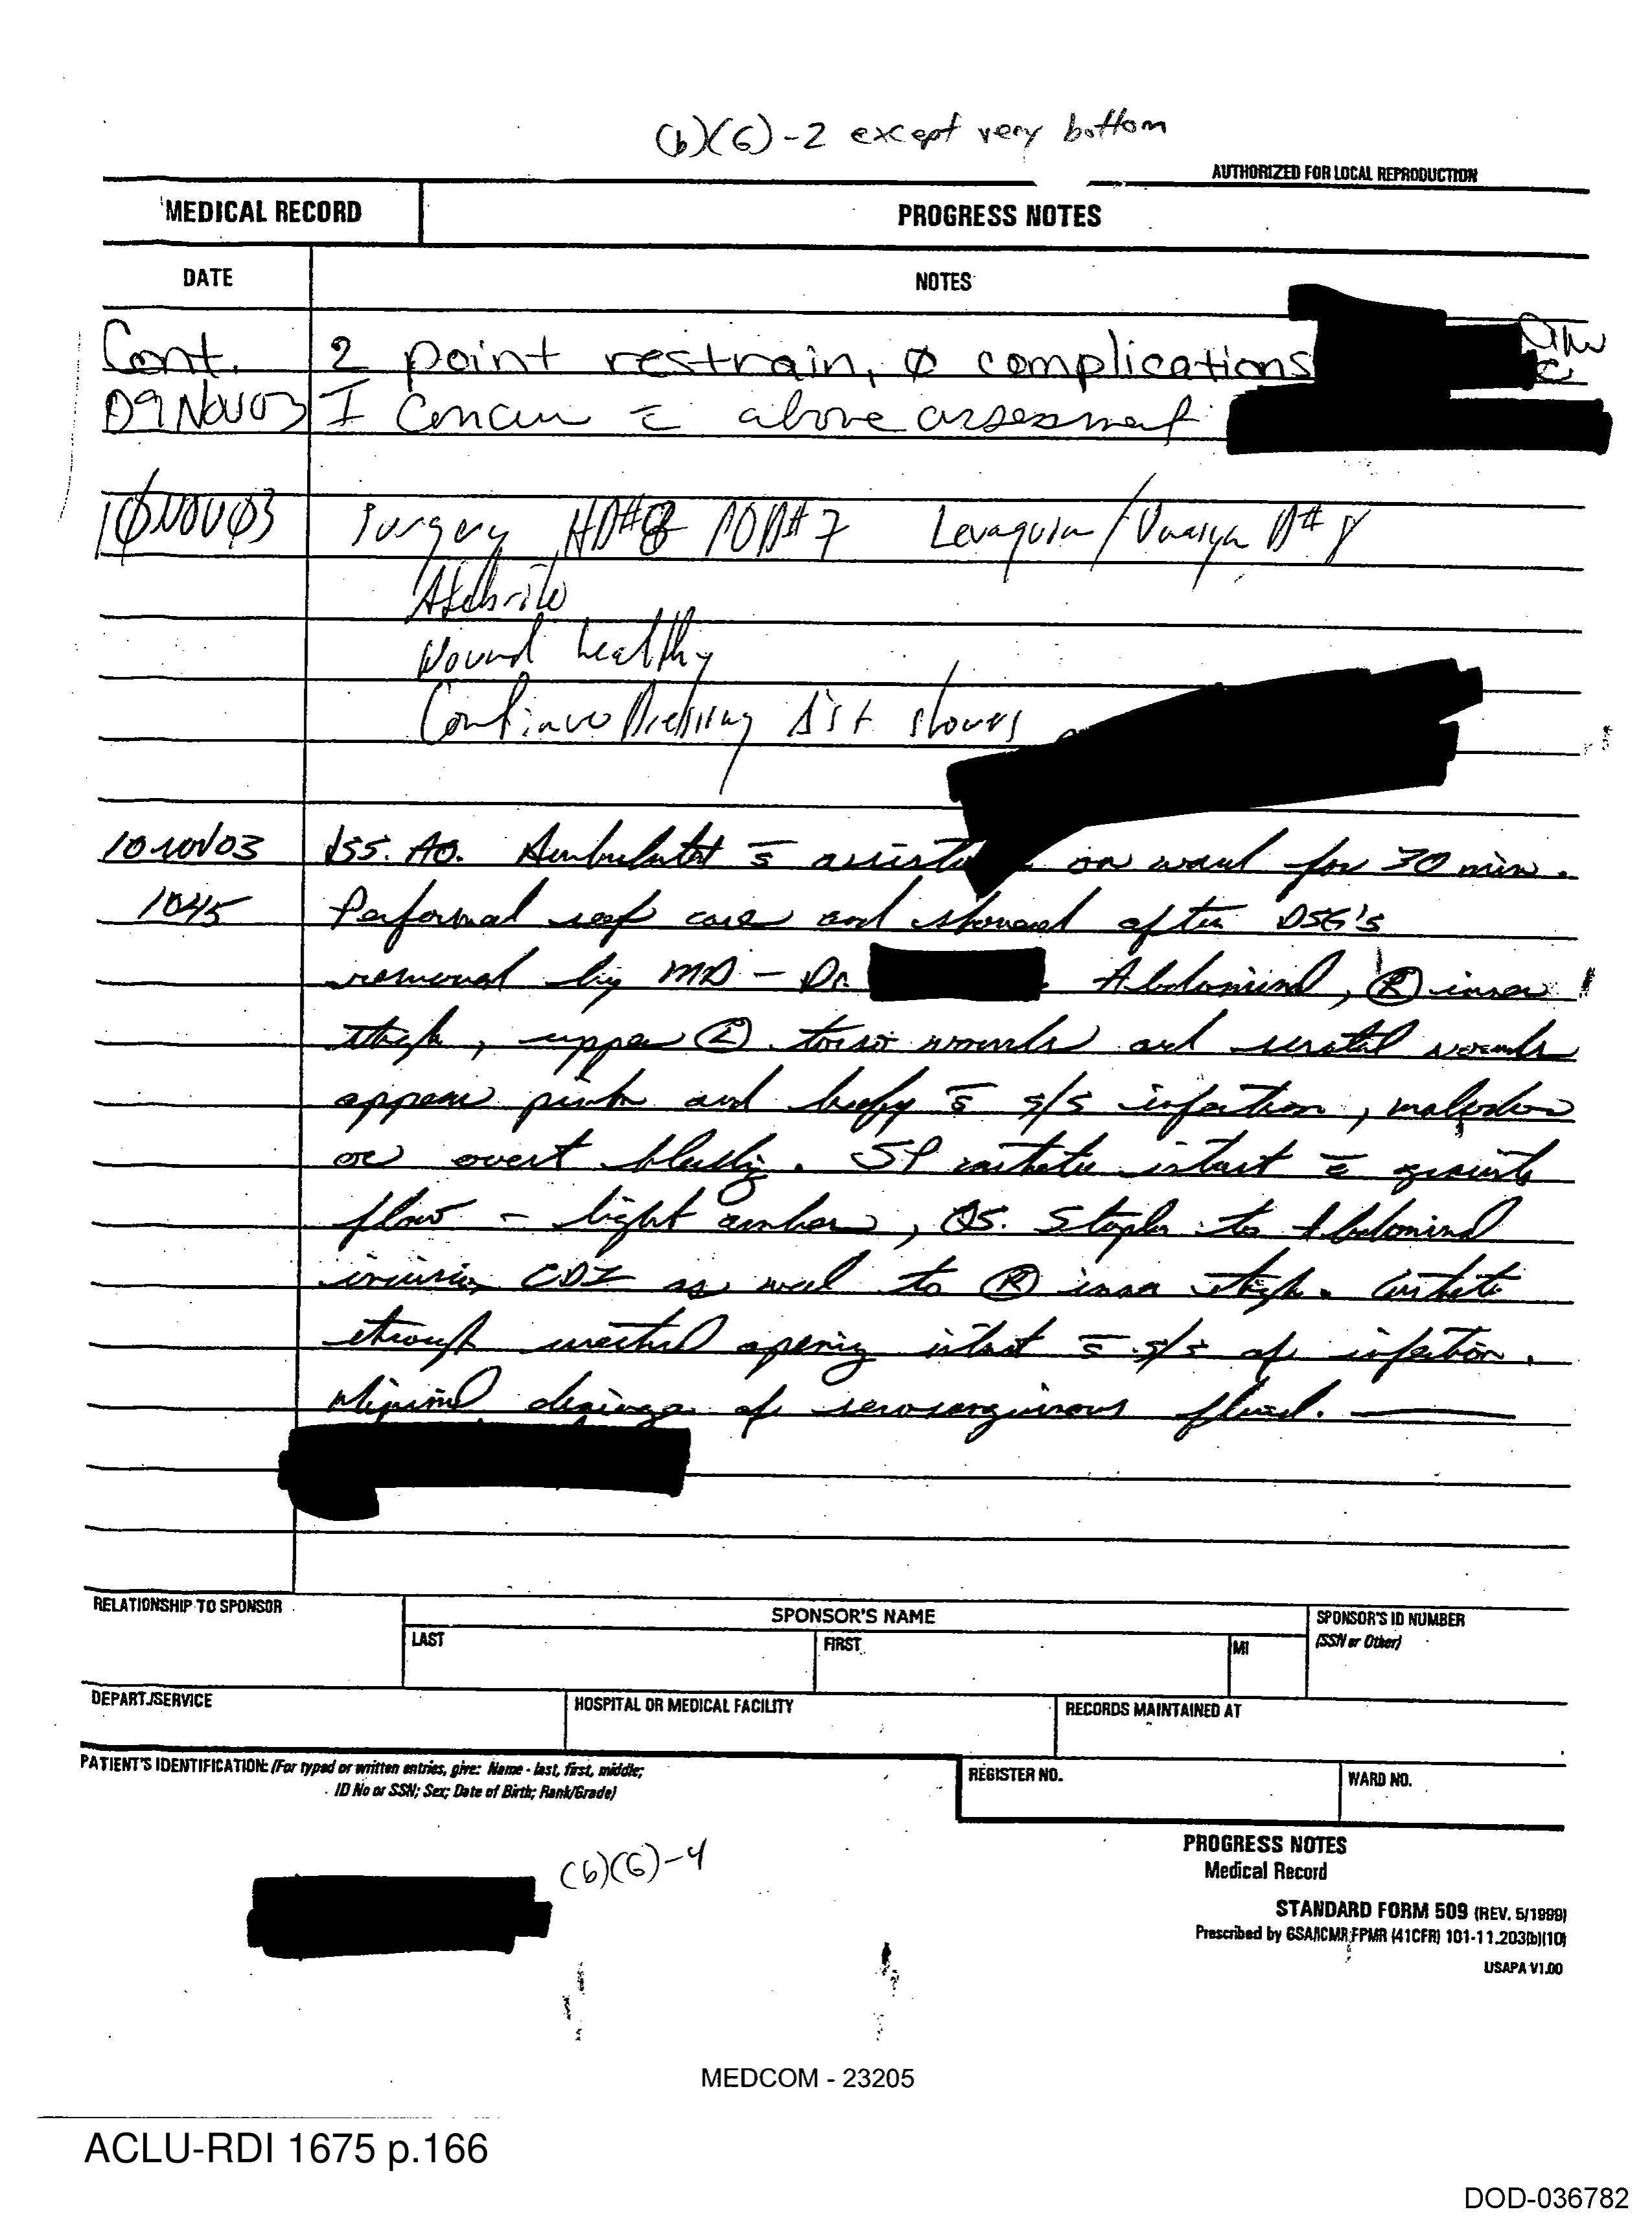 (b)(6)-2 except very bottom
AUTHORIZED FOR LOCAL REPRODUCTION
MEDICAL RECORD
PROGRESS NOTES
DATE
NOTES
Cont. 2 point restrain, ø complications
09 Nov 03 I concur c̄ above assessment
10 Nov 03 Surgery HD#8 POD#7 Levaquin/Unasyn D#8
Afebrile
Wound healthy
Continue Dressing
10 NOV 03 VSS. AO. Ambulated s̄ on ward for 30 min.
1045 Performed self care and showered after DSG's
removal by MD - Dr. Abdominal, Ⓡ inner
thigh, upper Ⓛ torso wounds and scrotal wounds
appear pink and beefy s̄ s/s infection, malodor
or overt bleeding. SP catheter intact c̄ gravity
flow - light amber, QS. Staples to Abdominal
incision CDI as well to Ⓡ inner thigh. Catheter
through urethral opening intact s̄ s/s of infection.
Minimal drainage of serosanguinous fluid.
RELATIONSHIP TO SPONSOR
SPONSOR'S NAME
SPONSOR'S ID NUMBER
(SSN or Other)
LAST
FIRST
MI
DEPART./SERVICE
HOSPITAL OR MEDICAL FACILITY
RECORDS MAINTAINED AT
PATIENT'S IDENTIFICATION: (For typed or written entries, give: Name - last, first, middle;
ID No or SSN; Sex; Date of Birth; Rank/Grade)
REGISTER NO.
WARD NO.
(b)(6)-4
PROGRESS NOTES
Medical Record
STANDARD FORM 509 (REV. 5/1999)
Prescribed by GSA/ICMR FPMR (41CFR) 101-11.203(b)(10)
USAPA V1.00
MEDCOM - 23205
ACLU-RDI 1675 p.166
DOD-036782